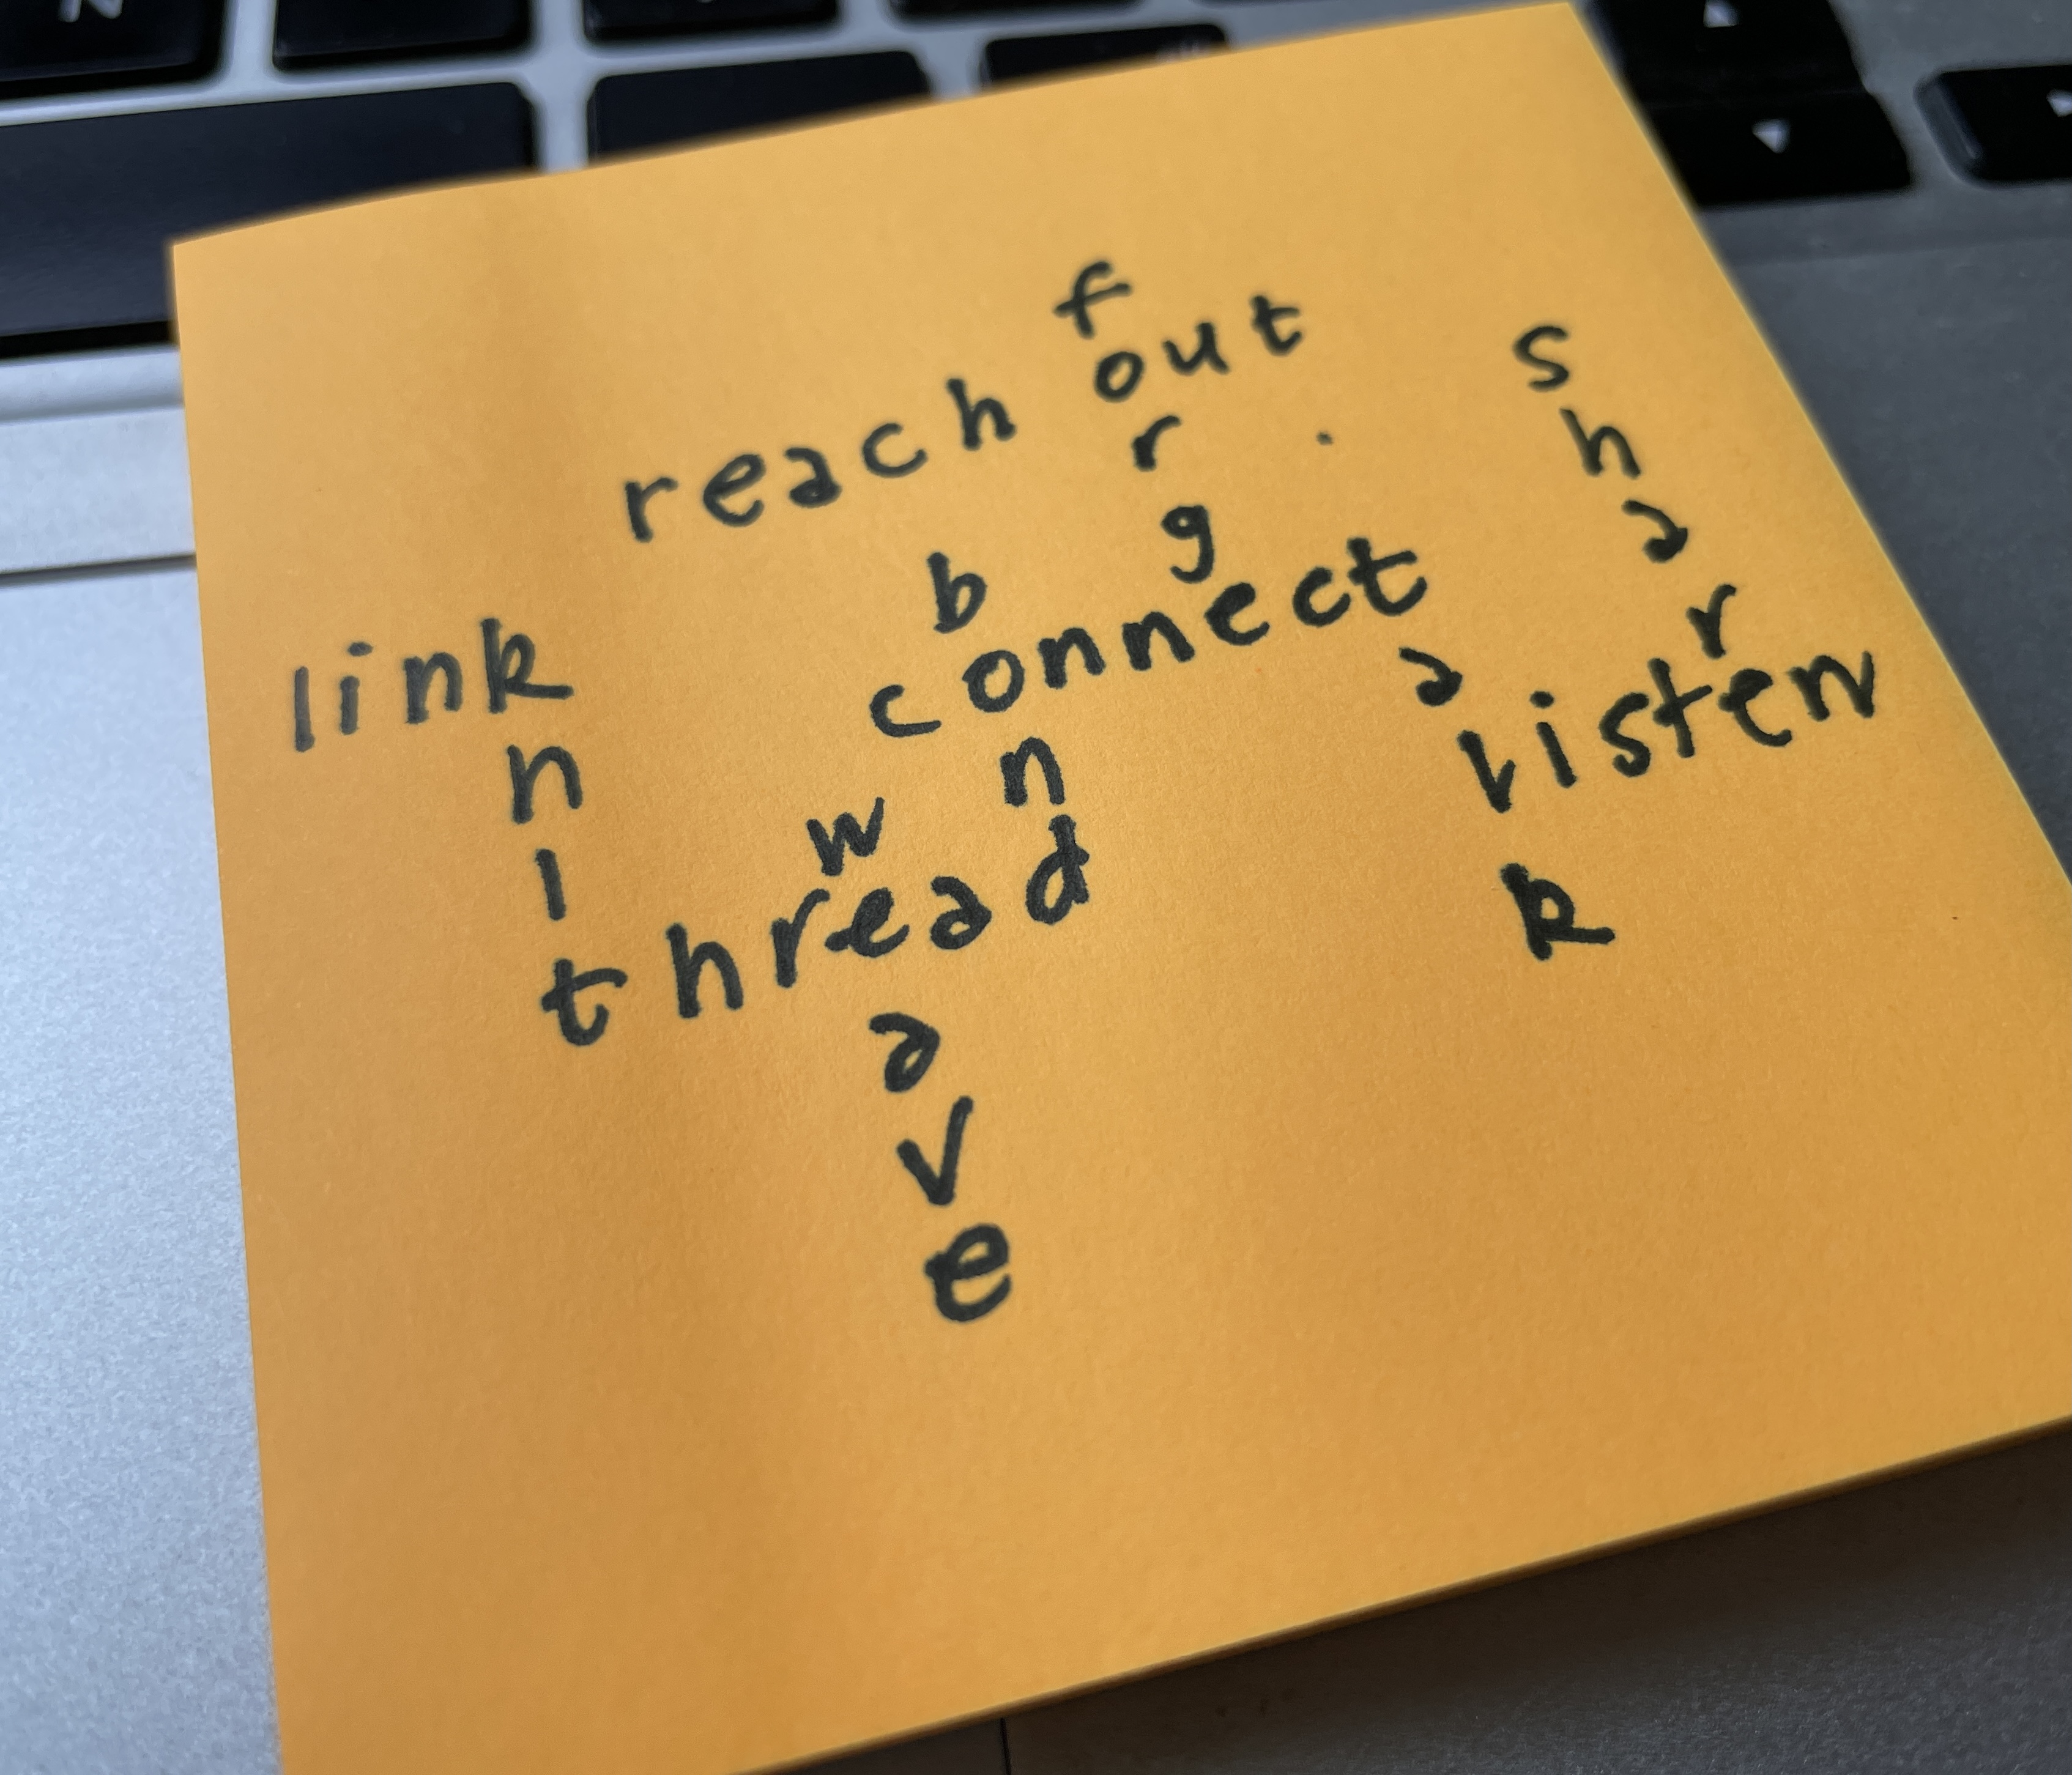 reach out
link
connect
listen
thread
forge
share
bond
talk
knit
weave
N